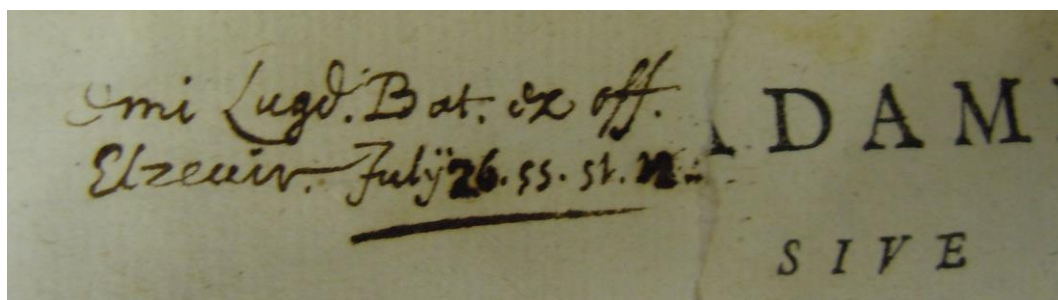 emi Lugd. Bat. ex off.
Elzeuir. Julÿ 26. 55. st. N.
ADAM
SIVE